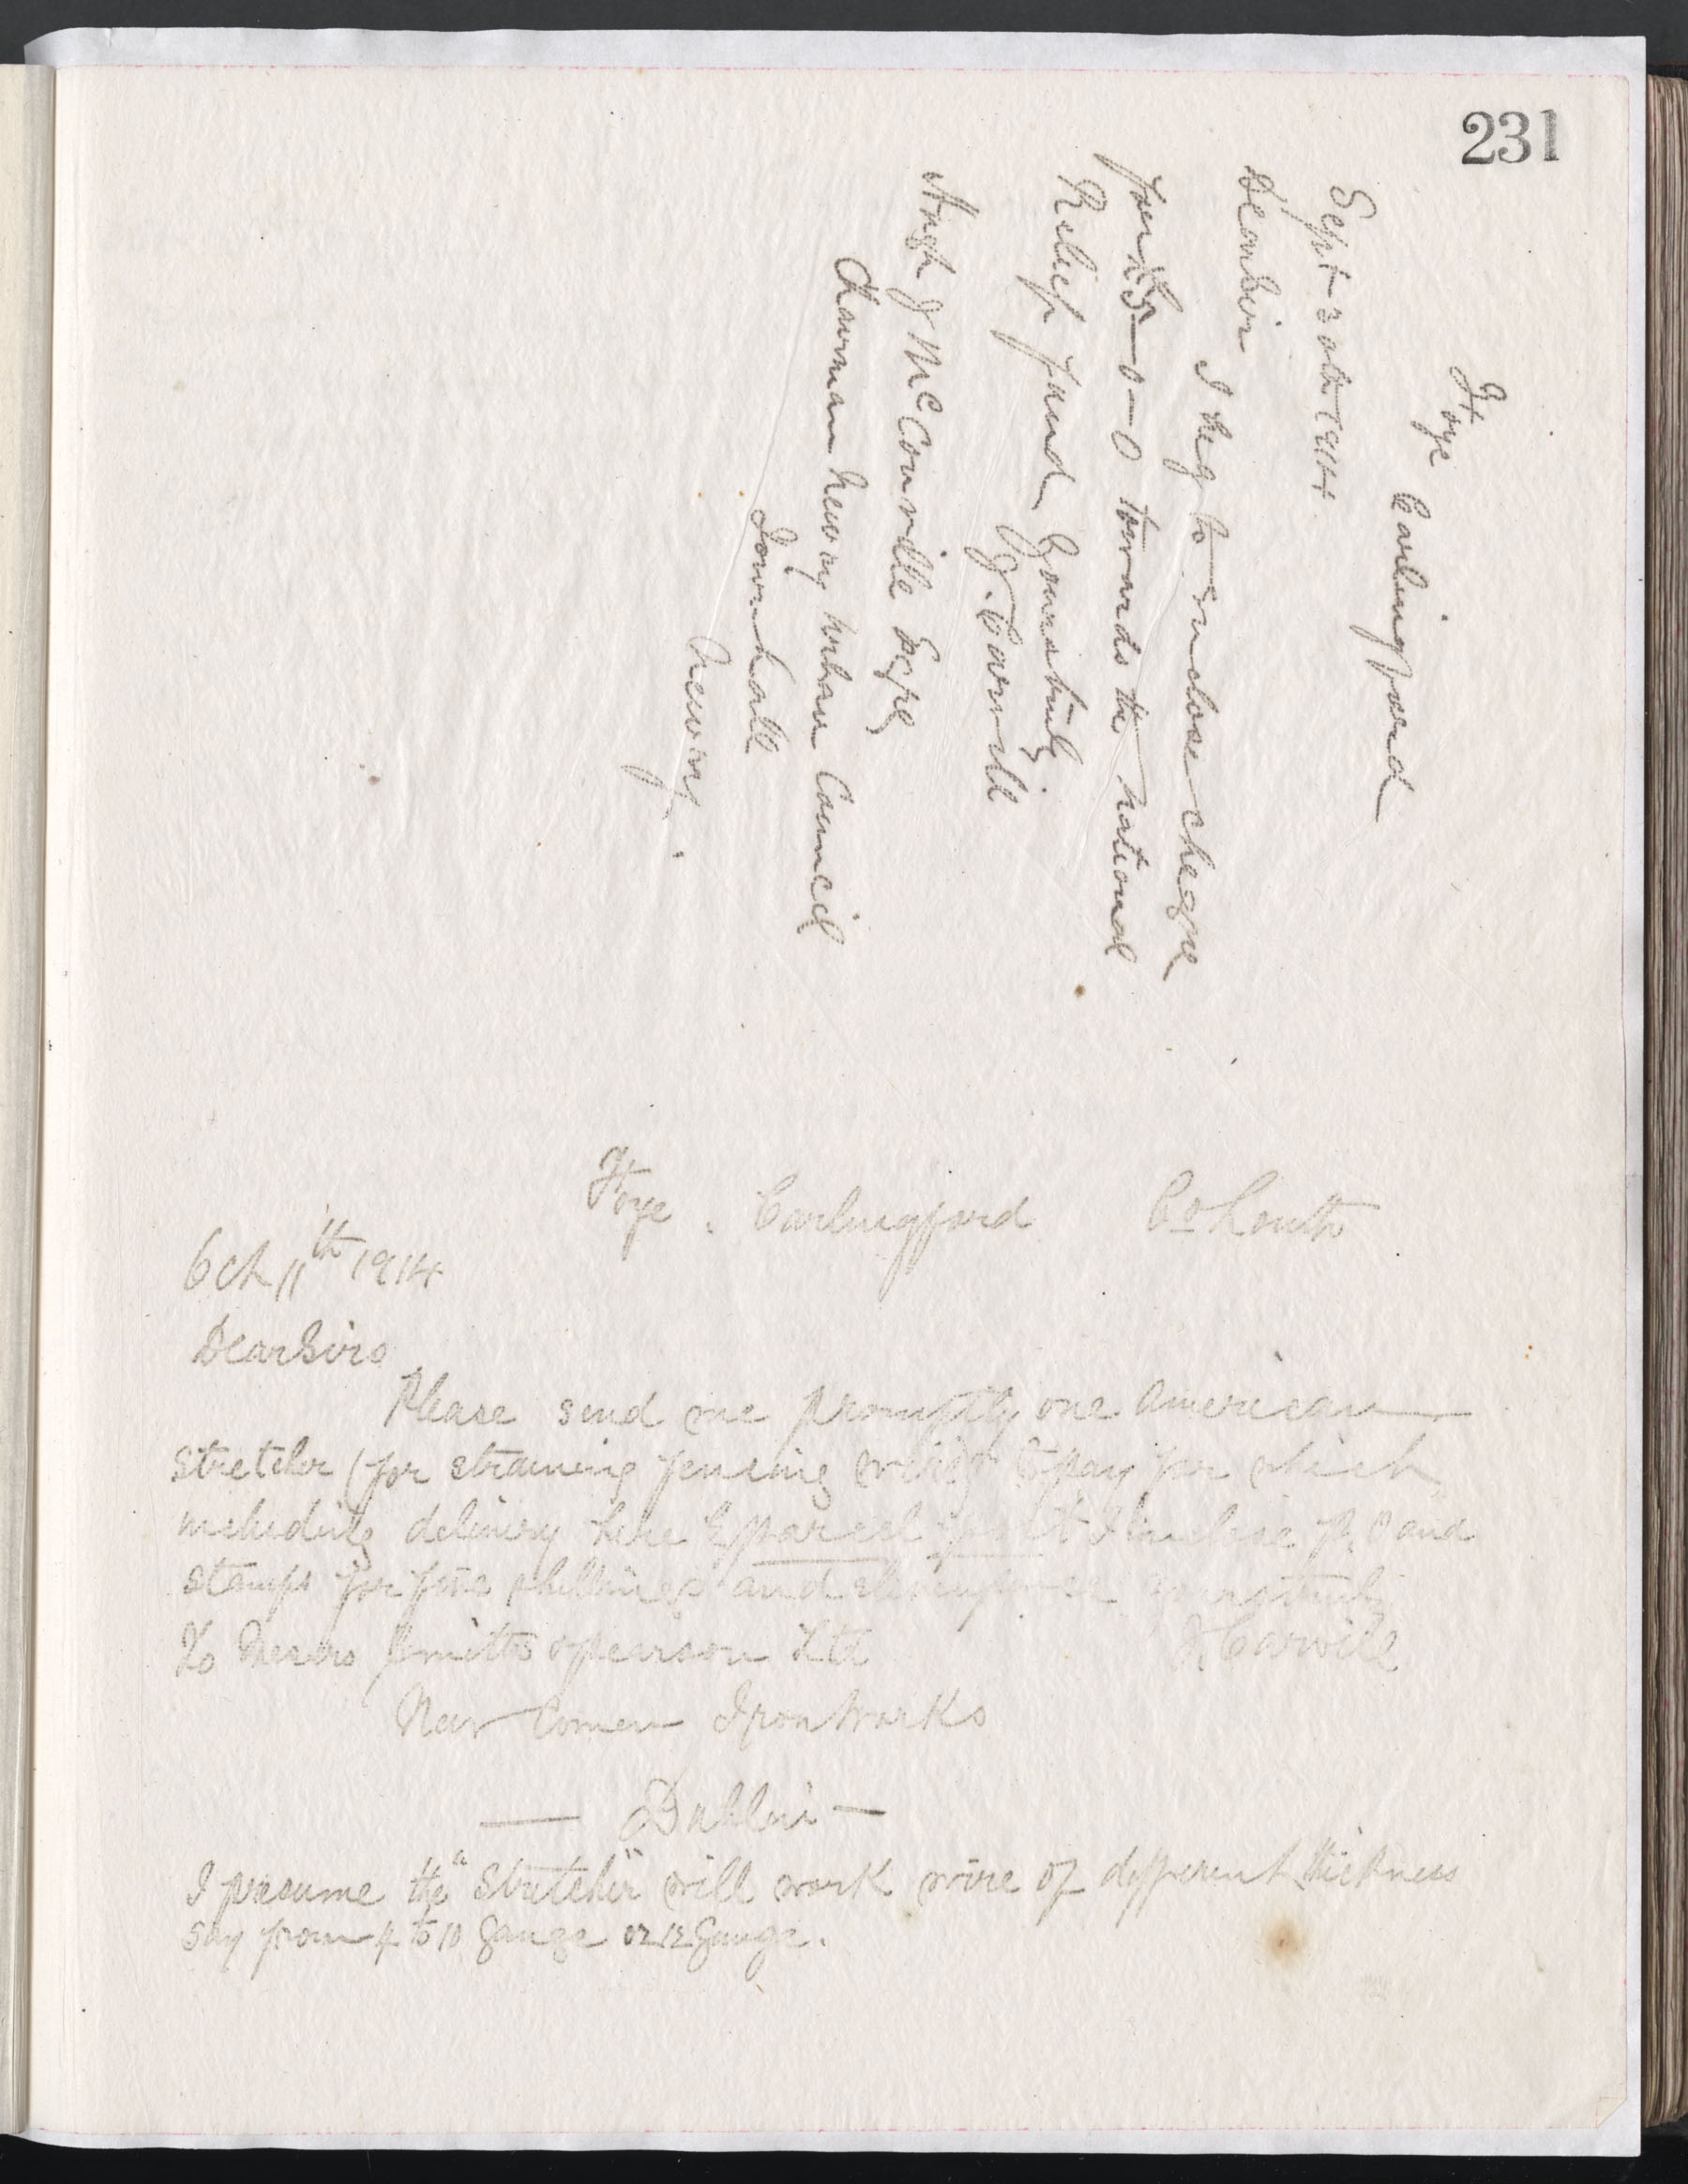 231
Ffoye Carlingford
Sept 30th 1914.
Dear Sir
I beg to inclose cheque
for £5-0-0 towards the national
Relief fund yours truly
J. Carville
Hugh J McConville Esqre
Chairman Newry Urban Council
Town hall
Newry.
Ffoye. Carlingford Co Louth
Oct 11th 1914
Dear Sirs
Please send me promptly one American
stretcher (for straining fencing wire) to pay for which
including delivery here by parcel post I inclose p.o and
stamps for five shillings and elevenpence yours truly
To Messrs Smith & Pearson Ltd J Carville
New Comen Iron Works
— Dublin —
I presume the "Stretcher" will work wire of different thickness
say from 4 to 10 gauge or 12 gauge.